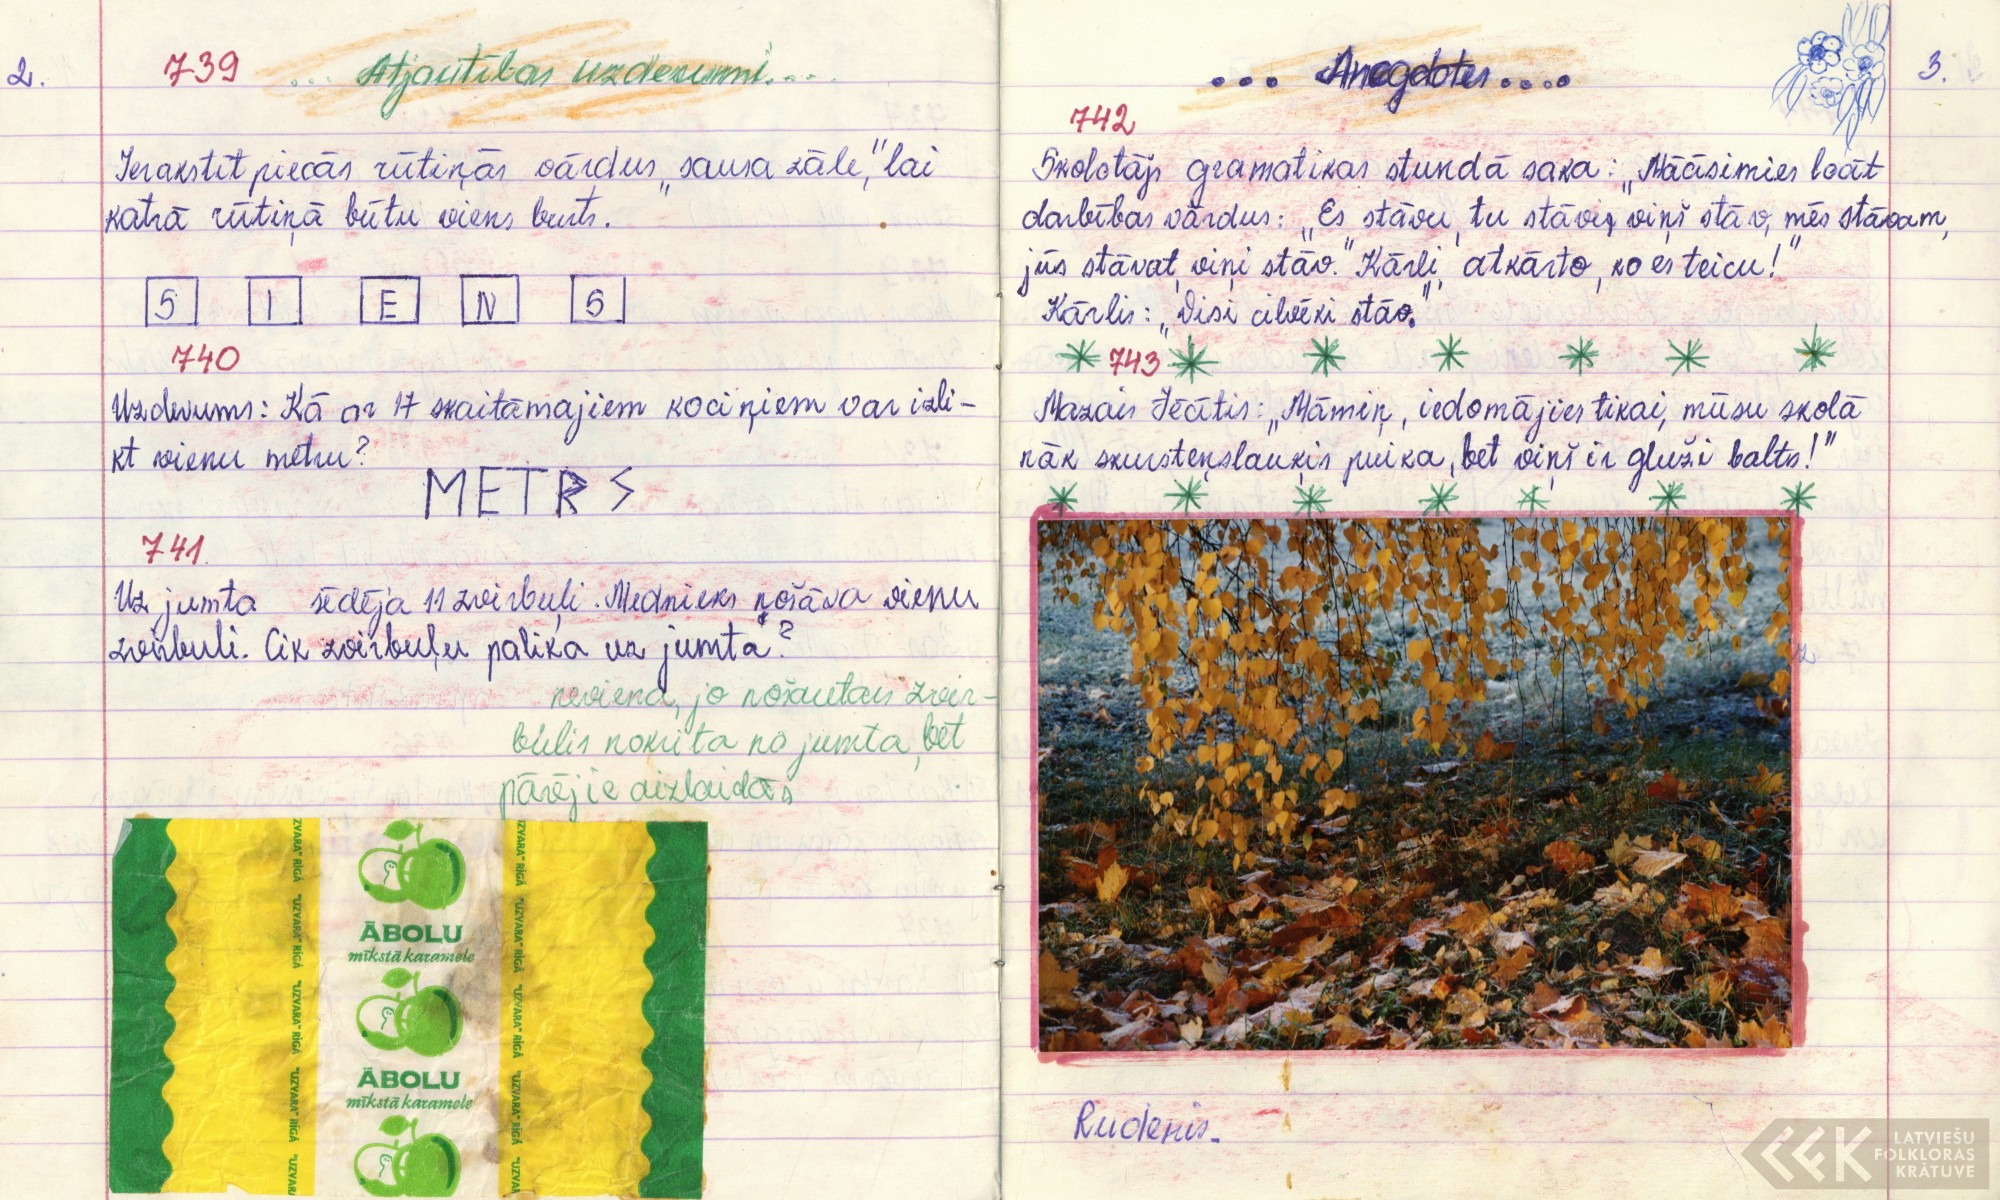 2.
739 ... Atjautības uzdevumi....
Ierakstīt piecās rūtiņās vārdus „sausa zāle," lai
katrā rūtiņā būtu viens burts.
S I E N S
740
Uzdevums: Kā ar 17 skaitāmajiem kociņiem var izli-
kt vienu metru?
METRS
741.
Uz jumta sēdēja 11 zvirbuļi. Mednieks nošāva vienu
zvirbuli. Cik zvirbuļu palika uz jumta?
neviena, jo nošautais zvir-
bulis nokrita no jumta, bet
pārējie aizlaidās
"UZVARA" RĪGĀ
"UZVARA" RĪGĀ
"UZVARA" RĪGĀ
"UZVARA" RĪGĀ
"UZVARA" RĪGĀ
"UZVARA" RĪGĀ
ĀBOLU
mīkstā karamele
ĀBOLU
mīkstā karamele
... Anegdotes....
3.
742
Skolotājs gramatikas stundā saka: „Mācīsimies locīt
darbības vārdus: „Es stāvu, tu stāvi, viņš stāv, mēs stāvam,
jūs stāvat, viņi stāv." Kārli, atkārto, ko es teicu!"
Kārlis: „Visi cilvēki stāv."
743
Mazais Jēcītis: „Māmiņ, iedomājies tikai, mūsu skolā
nāk skursteņslauķis puika, bet viņš ir gluži balts!"
Rudenis.
LFK
LATVIEŠU
FOLKLORAS
KRĀTUVE